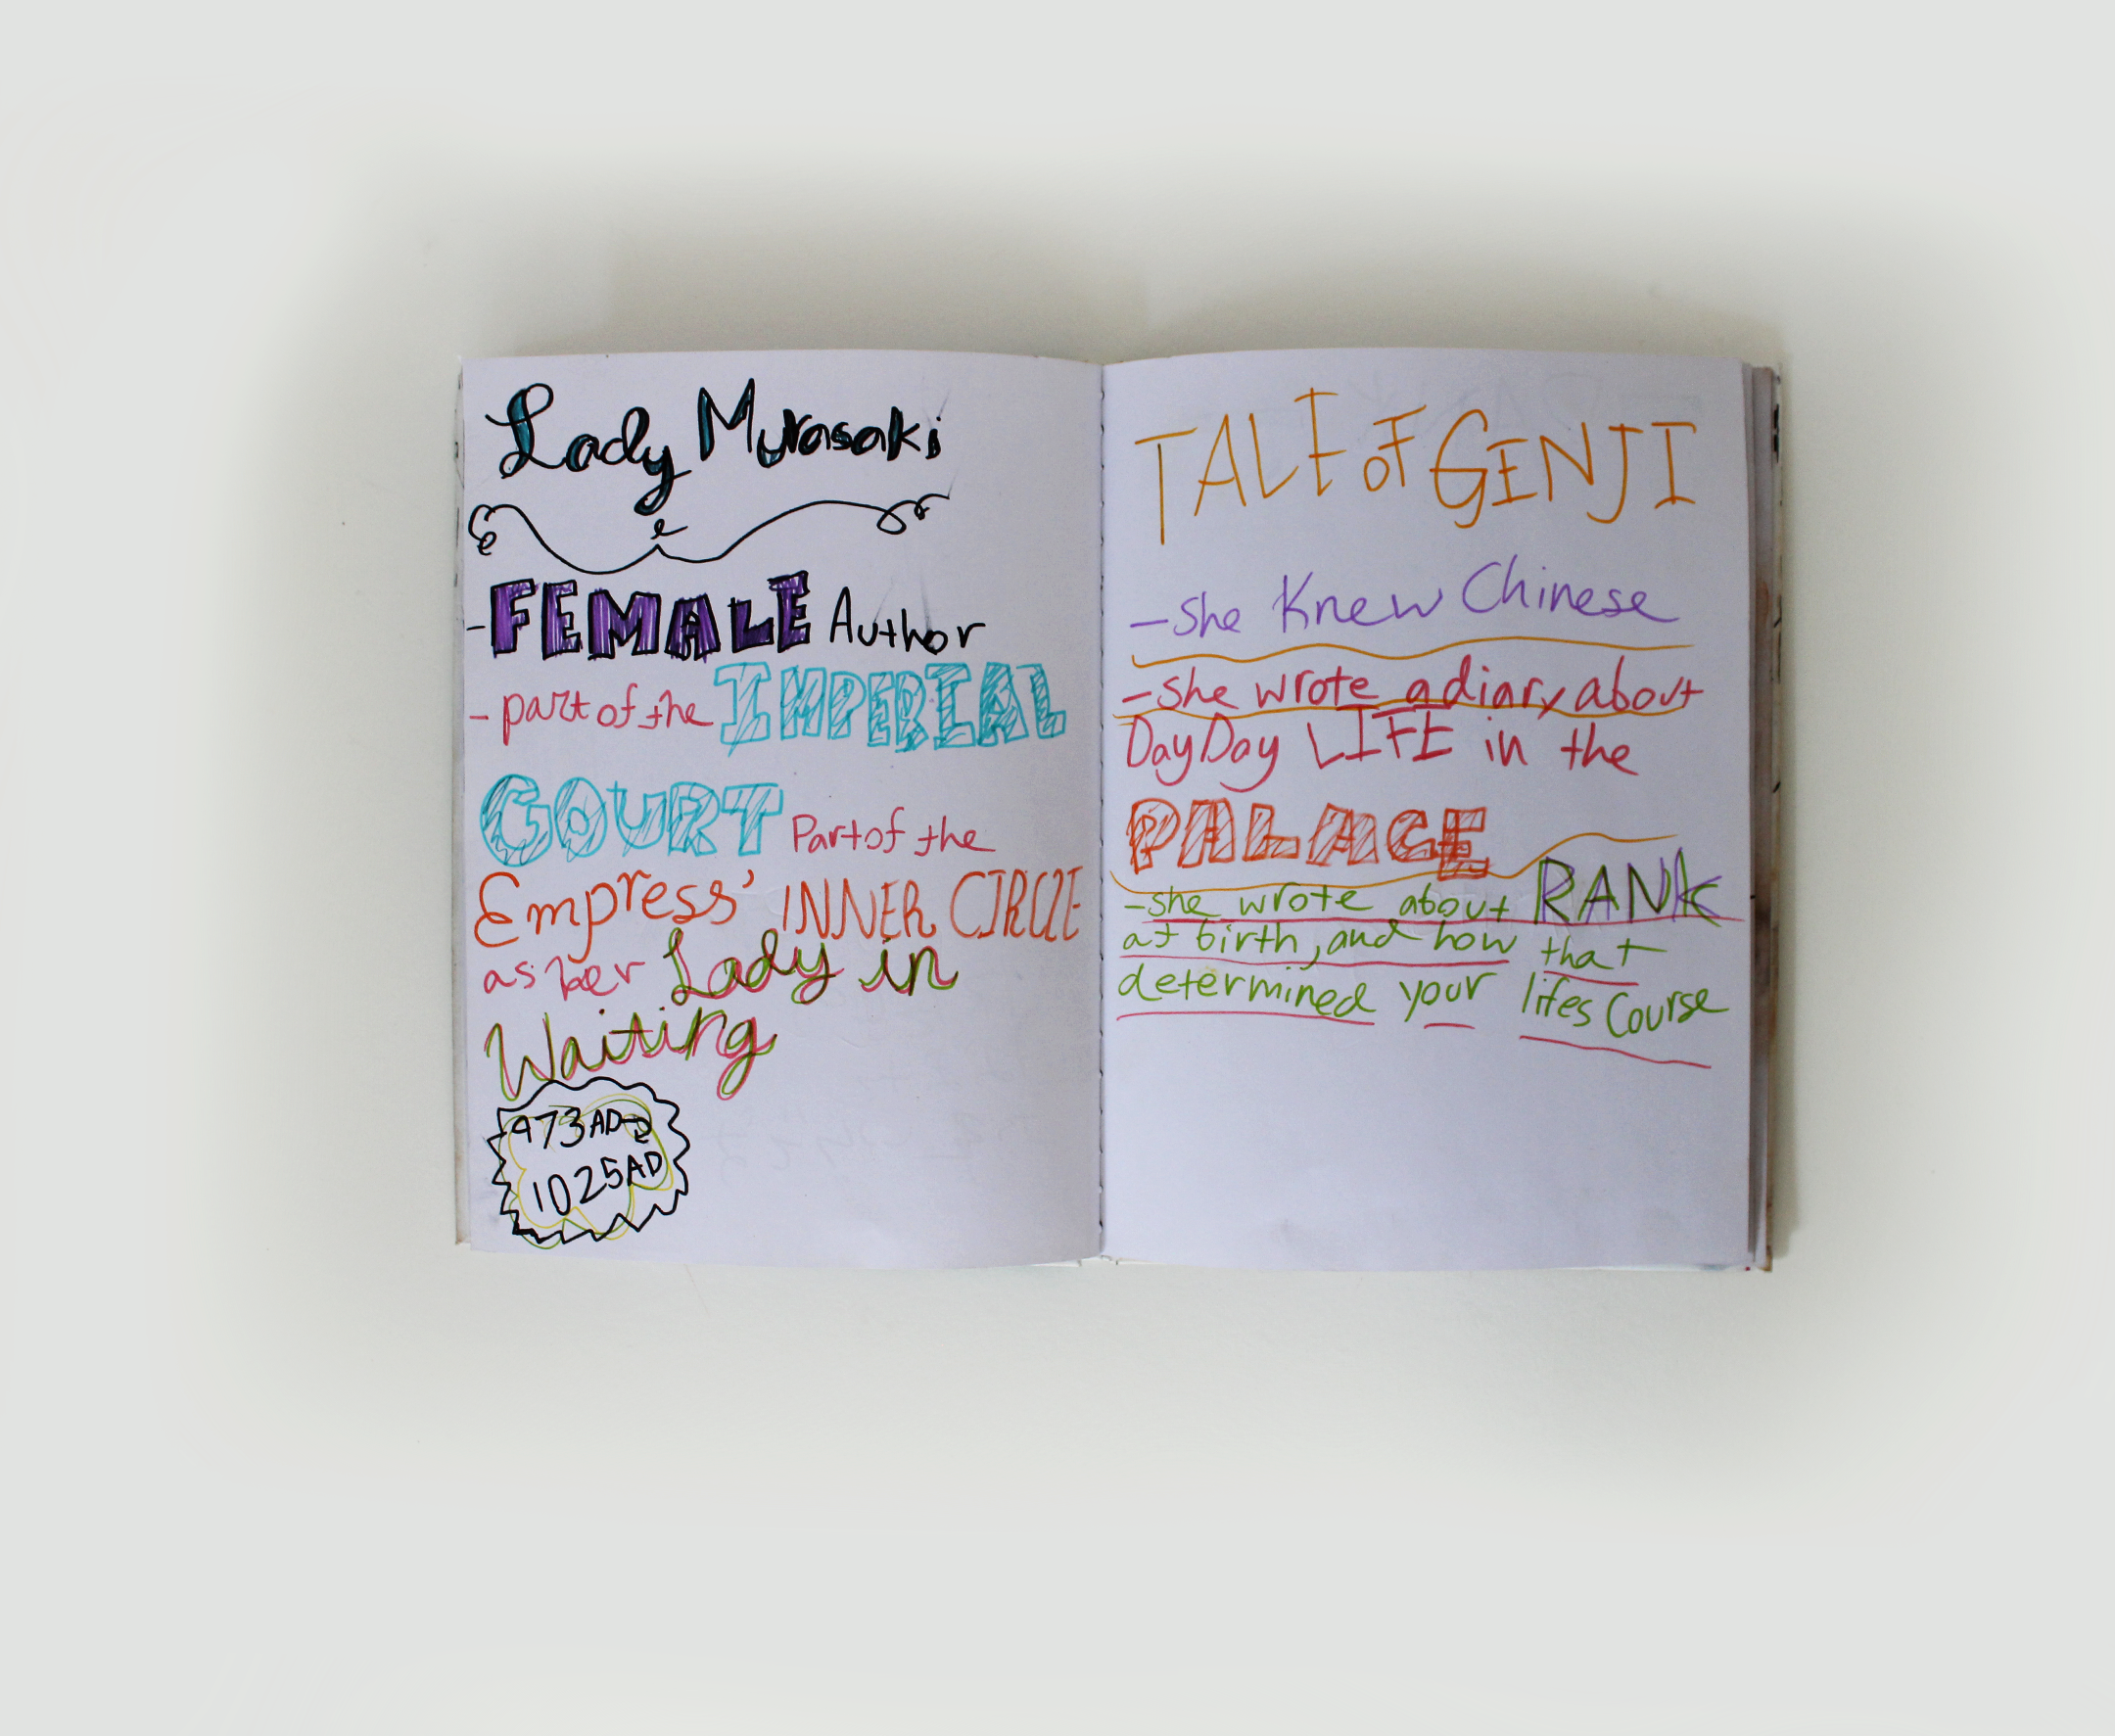 Lady Murasaki
- FEMALE Author
- part of the IMPERIAL
COURT Part of the
Empress' INNER CIRCLE
as her Lady in
Waiting
973AD-
1025AD
TALE OF GENJI
- She Knew Chinese
- She wrote a diary about
Day Day LIFE in the
PALACE
- she wrote about RANK
at birth, and how that
determined your lifes Course